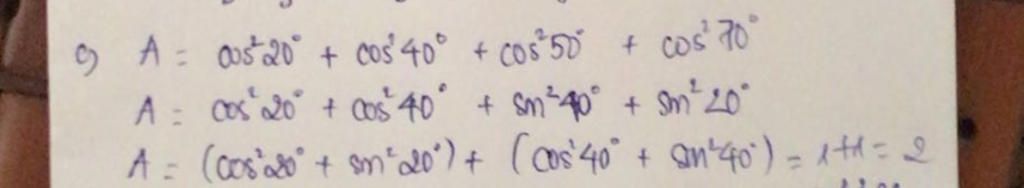 c) A = cos²20° + cos²40° + cos²50° + cos²70°
A = cos²20° + cos²40° + sin²40° + sin²20°
A = (cos²20° + sin²20°) + (cos²40° + sin²40°) = 1+1 = 2